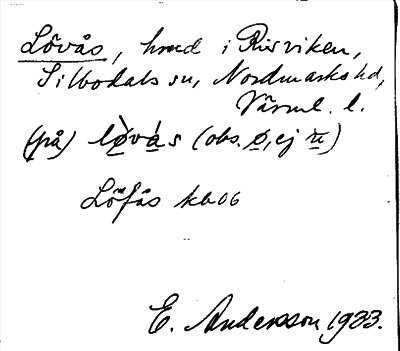 Lövås, hmd i Risviken,
Silbodals sn, Nordmarks hd,
Värml. l.
(på) lø̀vás (obs. ø, ej
Löfås kb 06
E. Andersson 1933.